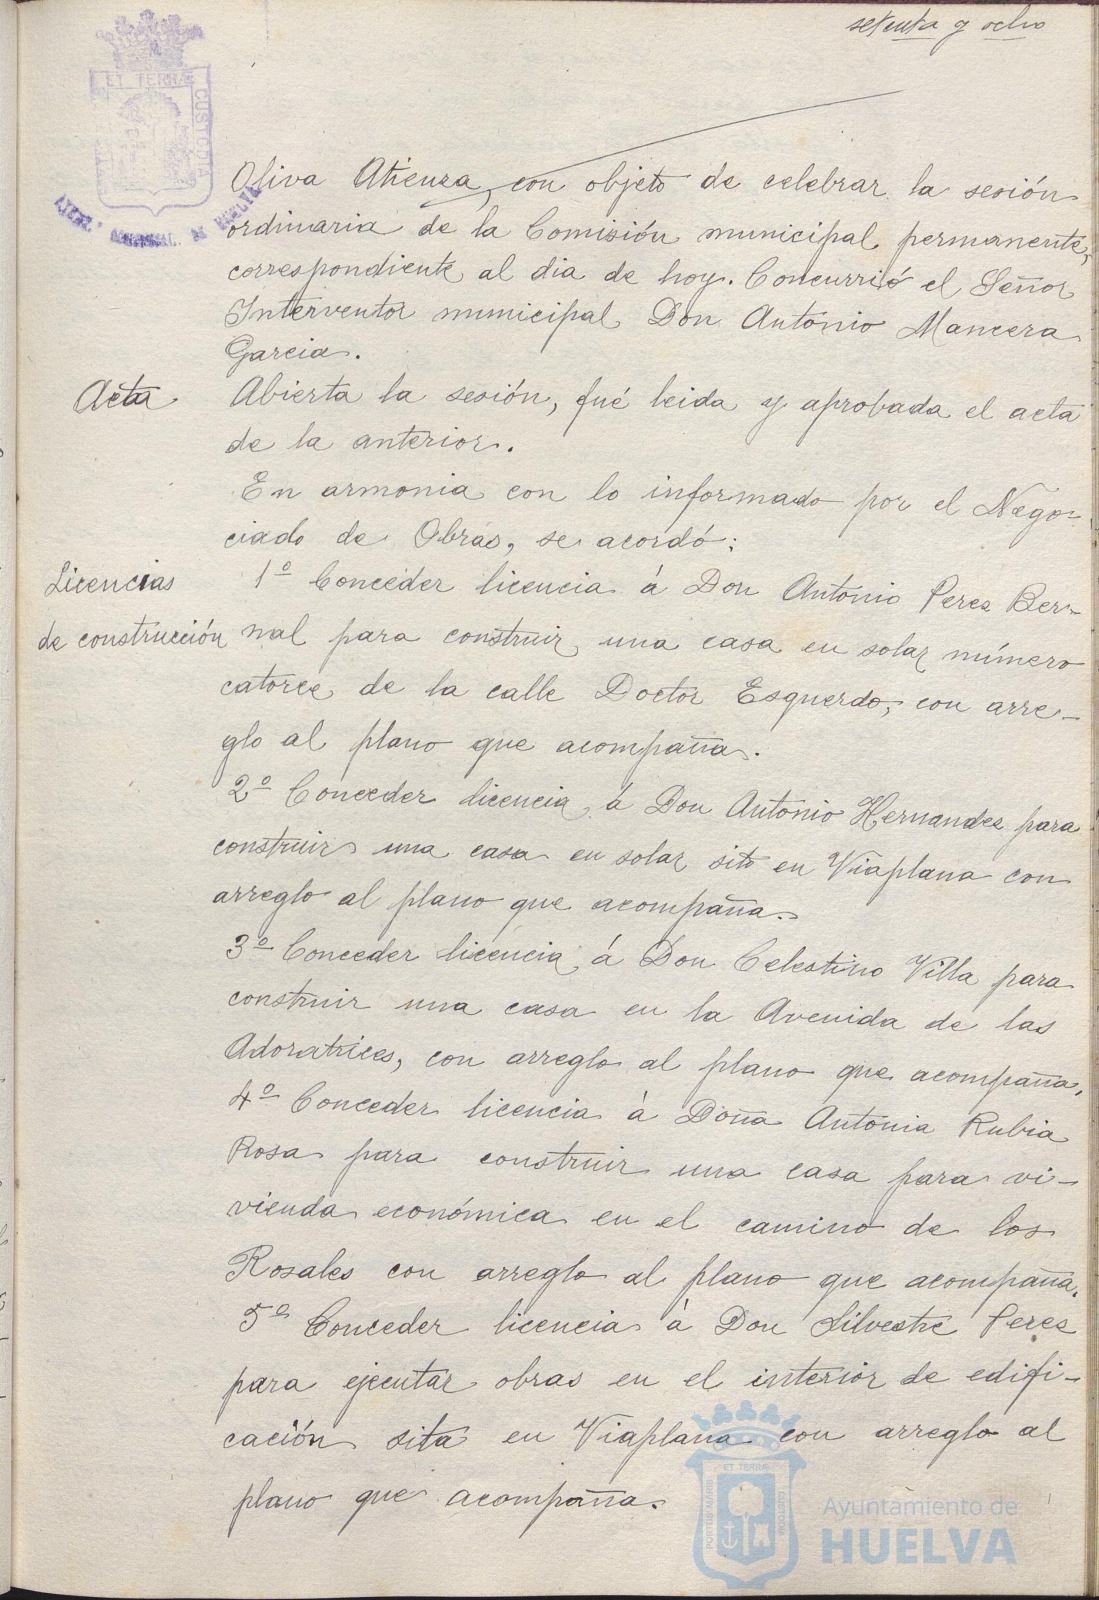 setenta y ocho
ET TERRÆ
CUSTODIA
Oliva Atienza, con objeto de celebrar la sesión
ordinaria de la Comisión municipal permanente,
correspondiente al dia de hoy. Concurrió el Señor
Interventor municipal Don Antonio Mancera
Garcia.
Acta
Abierta la sesión, fué leida y aprobada el acta
de la anterior.
En armonia con lo informado por el Nego-
ciado de Obras, se acordó:
Licencias
de construcción
1º Conceder licencia á Don Antonio Perez Ber-
nal para construir una casa en solar número
catorce de la calle Doctor Esquerdo, con arre-
glo al plano que acompaña.
2º Conceder licencia á Don Antonio Hernandez para
construir una casa en solar sito en Viaplana con
arreglo al plano que acompaña.
3º Conceder licencia á Don Celestino Villa para
construir una casa en la Avenida de las
Adoratrices, con arreglo al plano que acompaña.
4º Conceder licencia á Doña Antonia Rubia
Rosa para construir una casa para vi-
vienda económica en el camino de los
Rosales con arreglo al plano que acompaña.
5º Conceder licencia á Don Silvestre Perez
para ejecutar obras en el interior de edifi-
cación sita en Viaplana con arreglo al
plano que acompaña.
PORTUS MARIS
ET TERRÆ
CUSTODIA
Ayuntamiento de
HUELVA